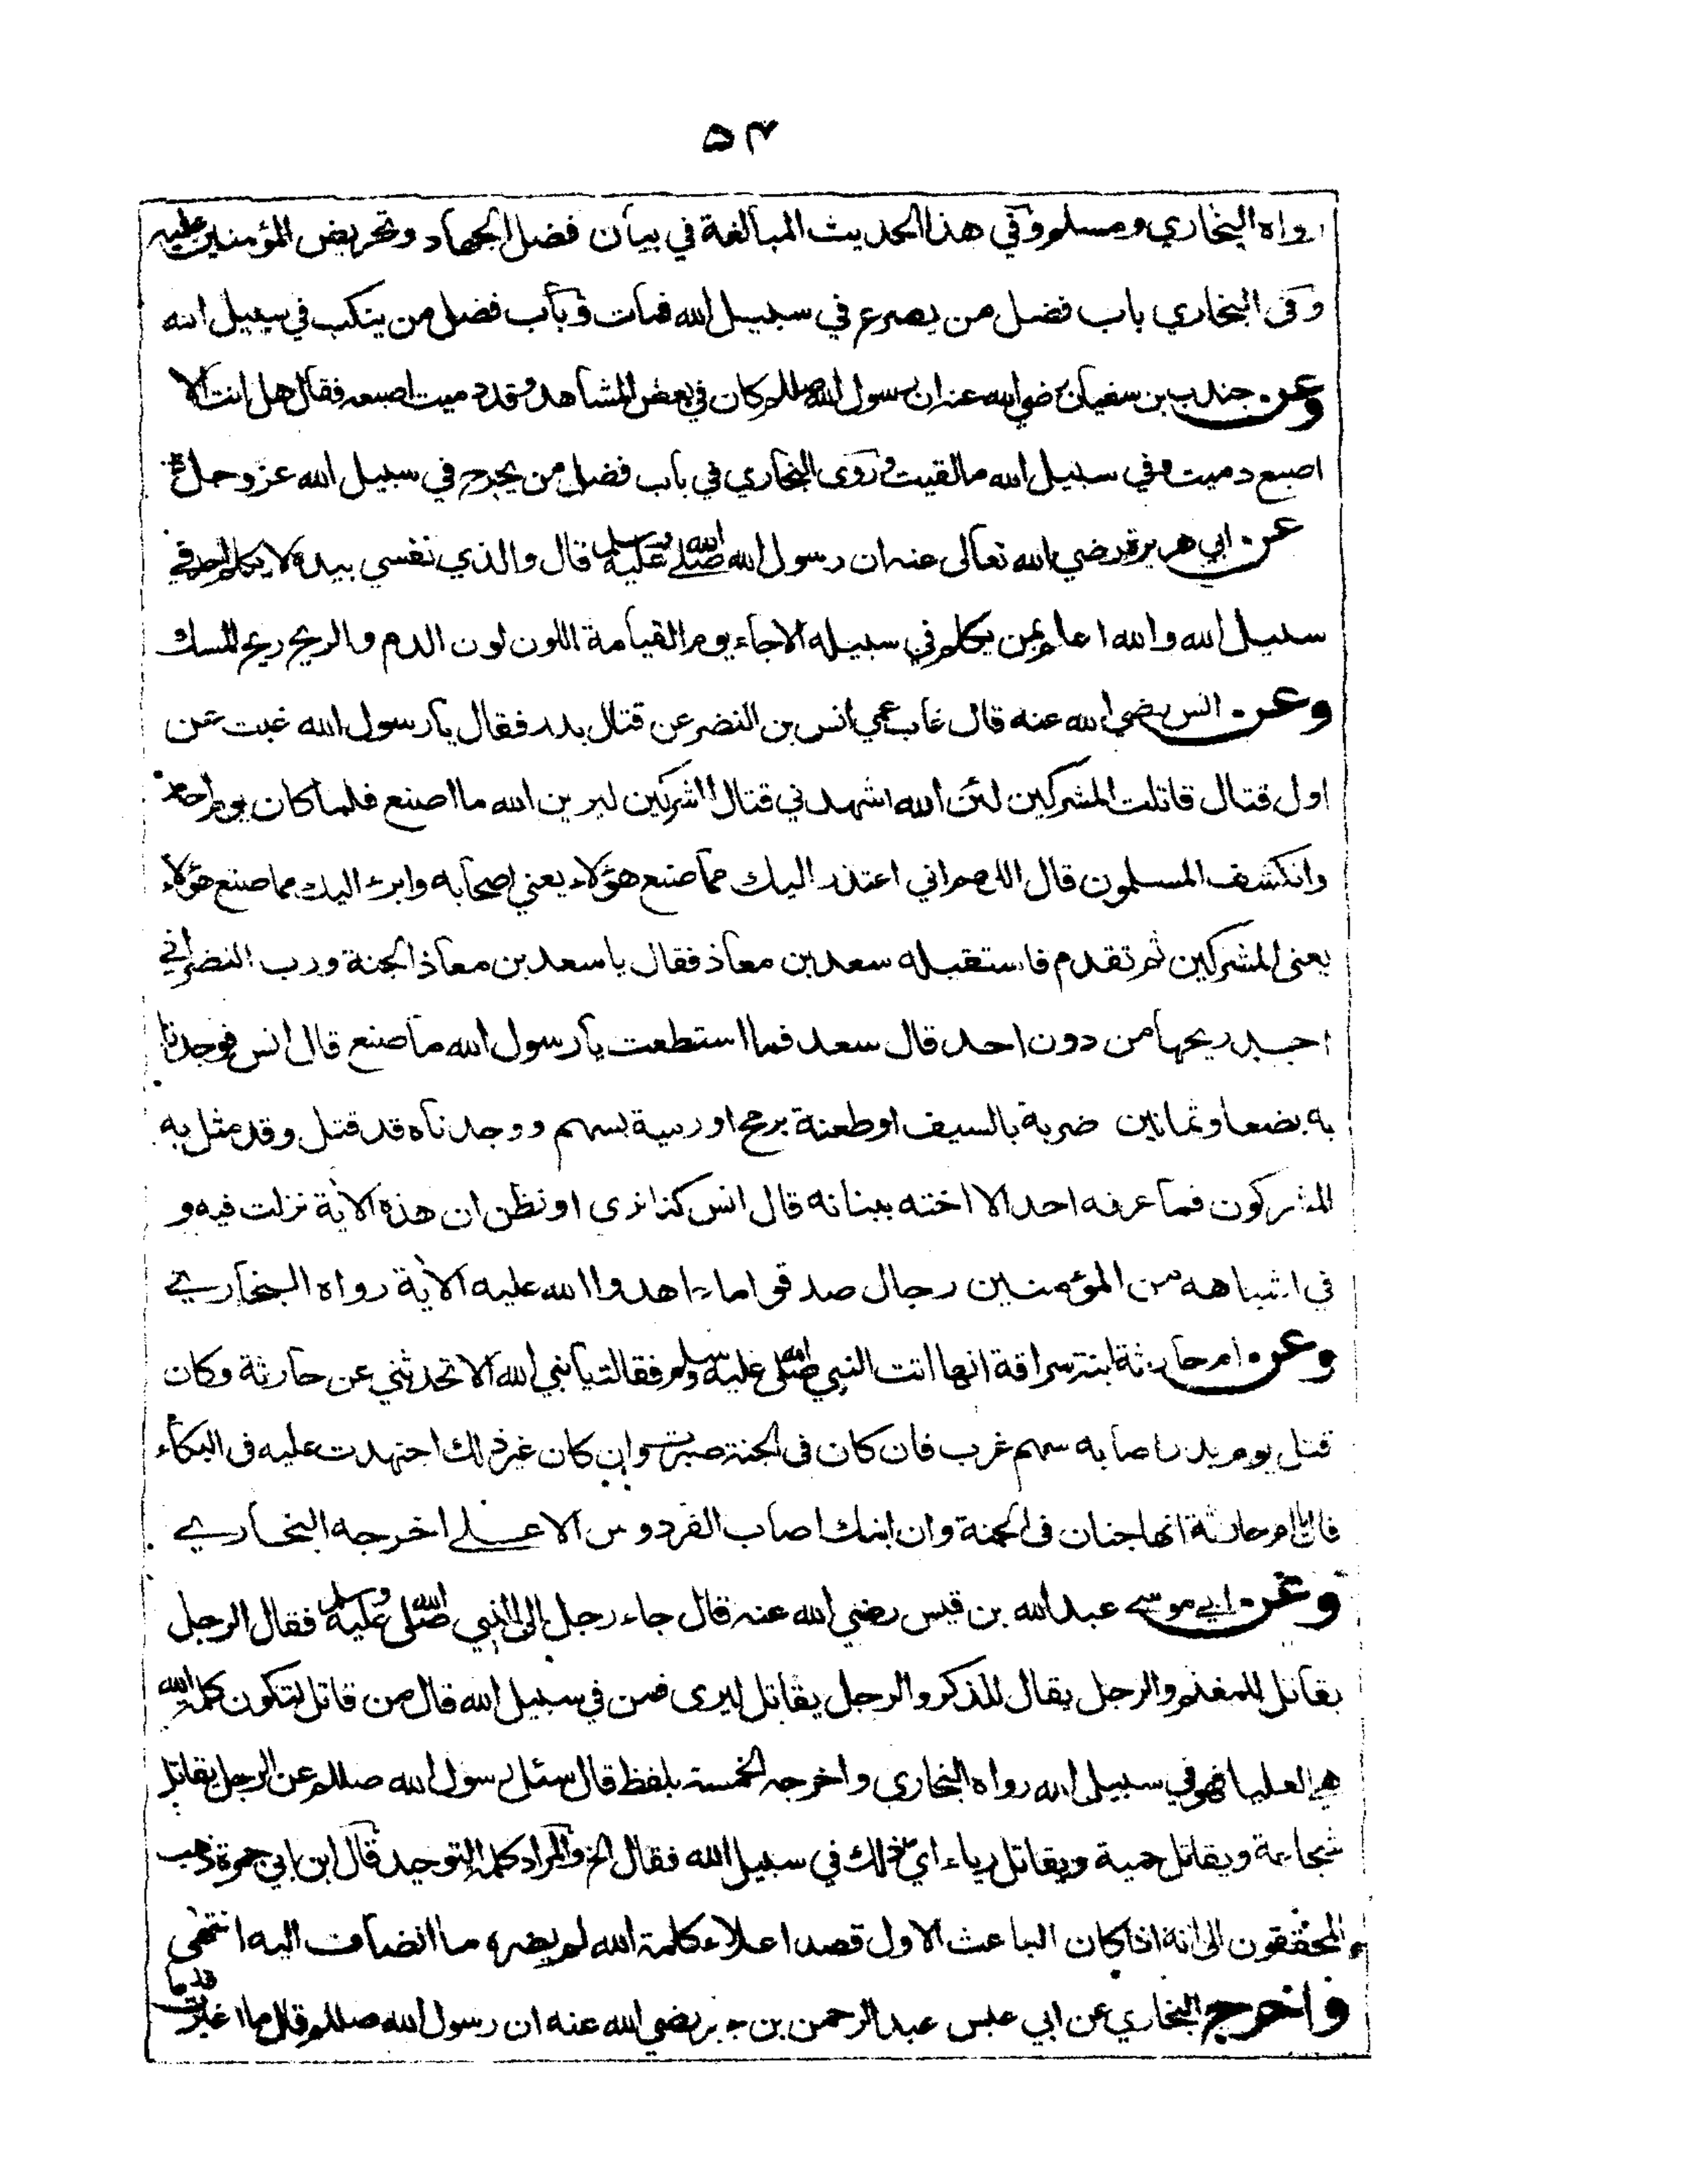 ٥٣
رواه البخاري ومسلم وفي هذا الحديث المبالغة في بيان فضل الجهاد وتحريض المؤمنين عليه
وفى البخاري باب فضل من يصرع في سبيل الله فمات وباب فضل من ينكب في سبيل الله
وعن جندب بن سفيان رضي الله عنه ان رسول الله صللم كان في بعض المشاهد وقد دميت اصبعه فقال هل انت الا
اصبع دميت وفي سبيل الله ما لقيت وروى البخاري في باب فضل من يجرح في سبيل الله عز وجل
عن ابي هريرة رضي الله تعالى عنه ان رسول الله صلى الله عليه وسلم قال والذي نفسي بيده لا يكلم احد في
سبيل الله والله اعلم بمن يكلم في سبيله الا جاء يوم القيامة اللون لون الدم والريح ريح المسك
وعن انس رضي الله عنه قال غاب عمي انس بن النضر عن قتال بدر فقال يا رسول الله غبت عن
اول قتال قاتلت المشركين لئن الله اشهدني قتال المشركين ليرين الله ما اصنع فلما كان يوم احد
وانكشف المسلمون قال اللهم اني اعتذر اليك مما صنع هؤلاء يعني اصحابه وابرء اليك مما صنع هؤلاء
يعنى المشركين ثم تقدم فاستقبله سعد بن معاذ فقال يا سعد بن معاذ الجنة ورب النضر اني
اجد ريحها من دون احد قال سعد فما استطعت يا رسول الله ما صنع قال انس فوجدنا
به بضعا وثمانين ضربة بالسيف او طعنة برمح او رمية بسهم ووجدناه قد قتل وقد مثل به
المشركون فما عرفه احد الا اخته ببنانه قال انس كنا نرى او نظن ان هذه الاية نزلت فيه و
في اشباهه من المؤمنين رجال صدقوا ما عاهدوا الله عليه الاية رواه البخاري
وعن ام حارثة ابنة سراقة انها اتت النبي صلى الله عليه وسلم فقالت يا نبي الله الا تحدثني عن حارثة وكان
قتل يوم بدر اصابه سهم غرب فان كان فى الجنة صبرت وان كان غير ذلك اجتهدت عليه فى البكاء
قال يا ام حارثة انها جنان فى الجنة وان ابنك اصاب الفردوس الاعلى اخرجه البخاري
وعن ابي موسى عبد الله بن قيس رضي الله عنه قال جاء رجل إلى النبي صلى الله عليه وسلم فقال الرجل
يقاتل للمغنم والرجل يقال للذكر والرجل يقاتل ليرى فمن في سبيل الله قال من قاتل لتكون كلمة الله
هي العليا فهو في سبيل الله رواه البخاري واخرجه الخمسة بلفظ قال سئل رسول الله صللم عن الرجل يقاتل
شجاعة ويقاتل حمية ويقاتل رياء اي ذلك في سبيل الله فقال الخ والمراد كلمة التوحيد قال ابن ابي جمرة ذهب
المحققون الى انه اذا كان الباعث الاول قصد اعلاء كلمة الله لم يضره ما انضاف اليه انتهى
واخرج البخاري عن ابي عبس عبد الرحمن بن جبر رضي الله عنه ان رسول الله صللم قال ما اغبرت قدما